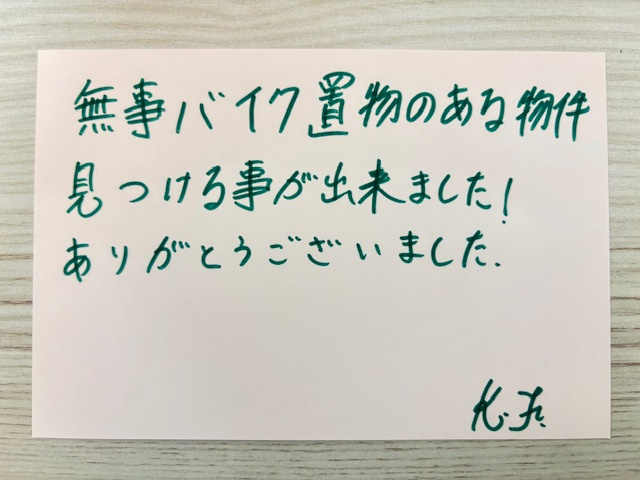 無事バイク置物のある物件
見つける事が出来ました!
ありがとうございました.